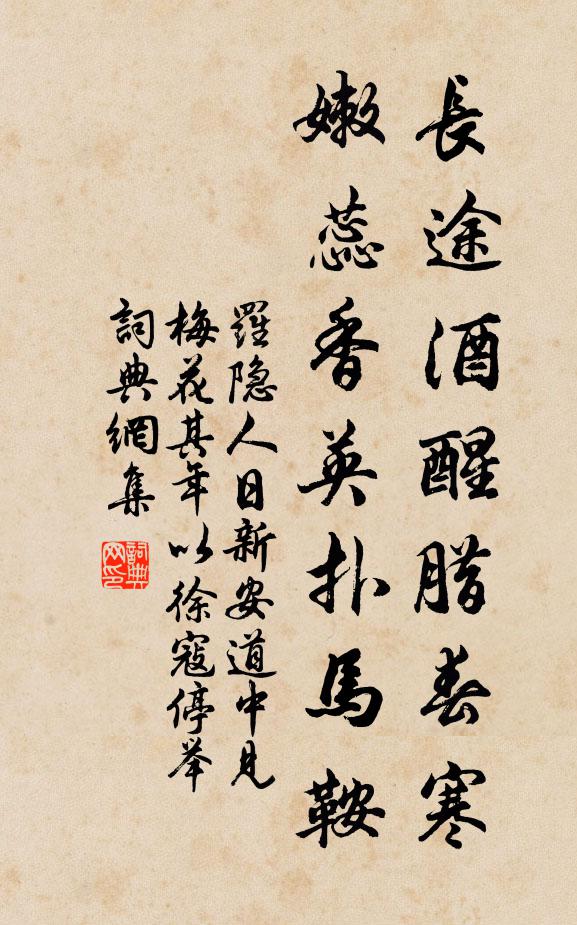 長途酒醒腊春寒
嫩蕊香英扑馬鞍
羅隐人日新安道中見
梅花其年以徐寇停举
詞典網集
詞典网印